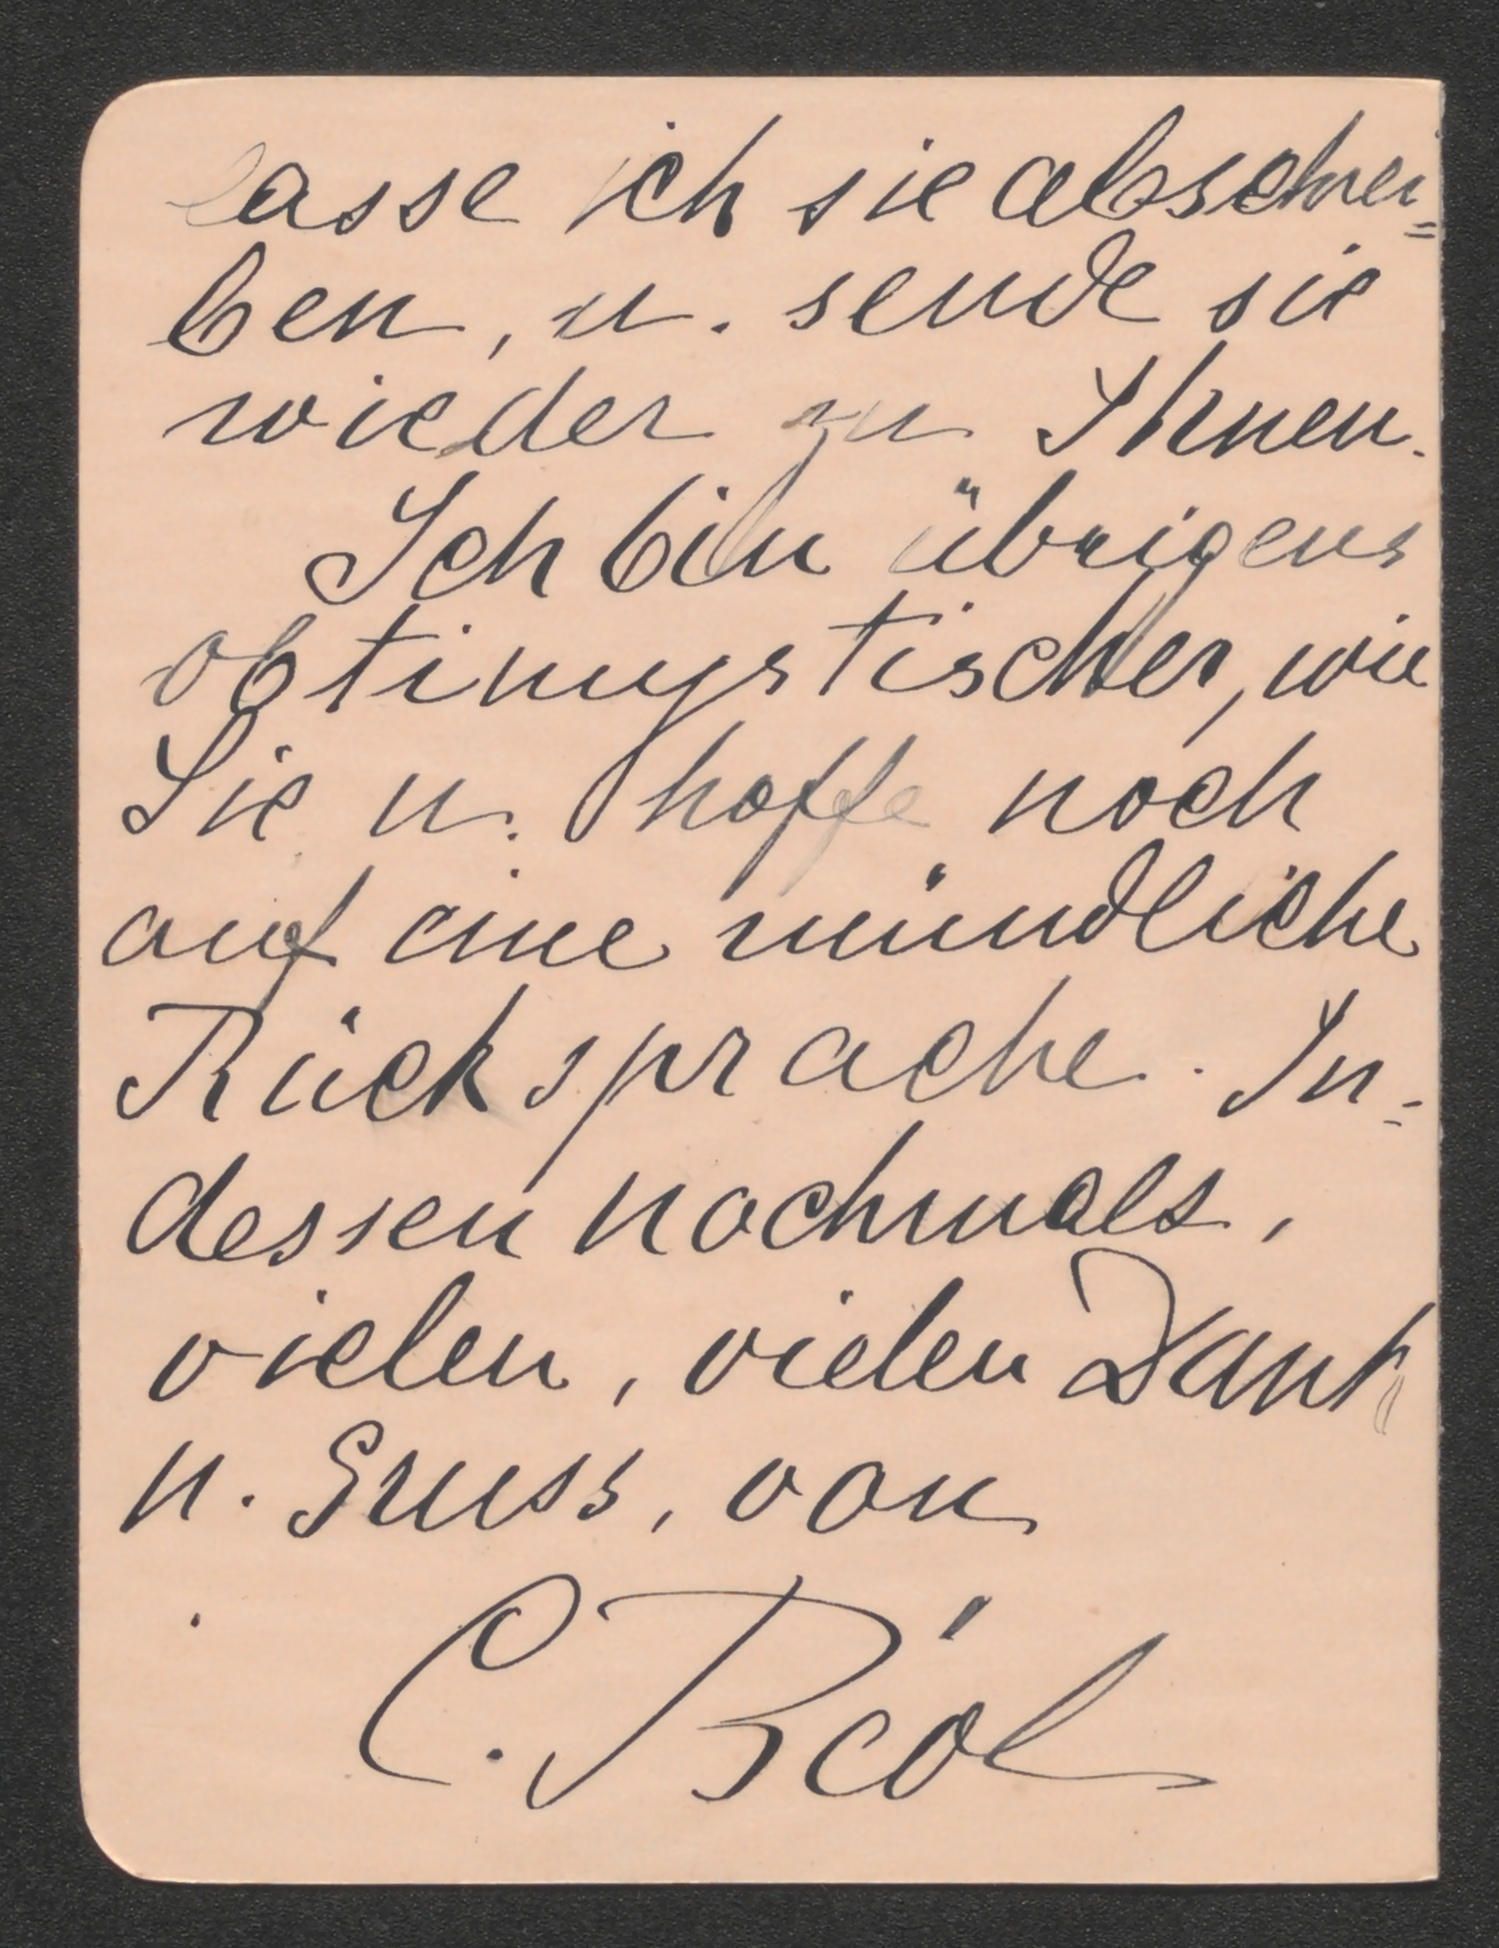 lasse ich sie abschrei=
ben, u. sende sie
wieder zu Ihnen.
Ich bin übrigens
obtimystischer, wie
Sie u. hoffe noch
auf eine mündliche
Rücksprache. In=
dessen nochmals,
vielen, vielen Dank
u. Gruss, von
C.